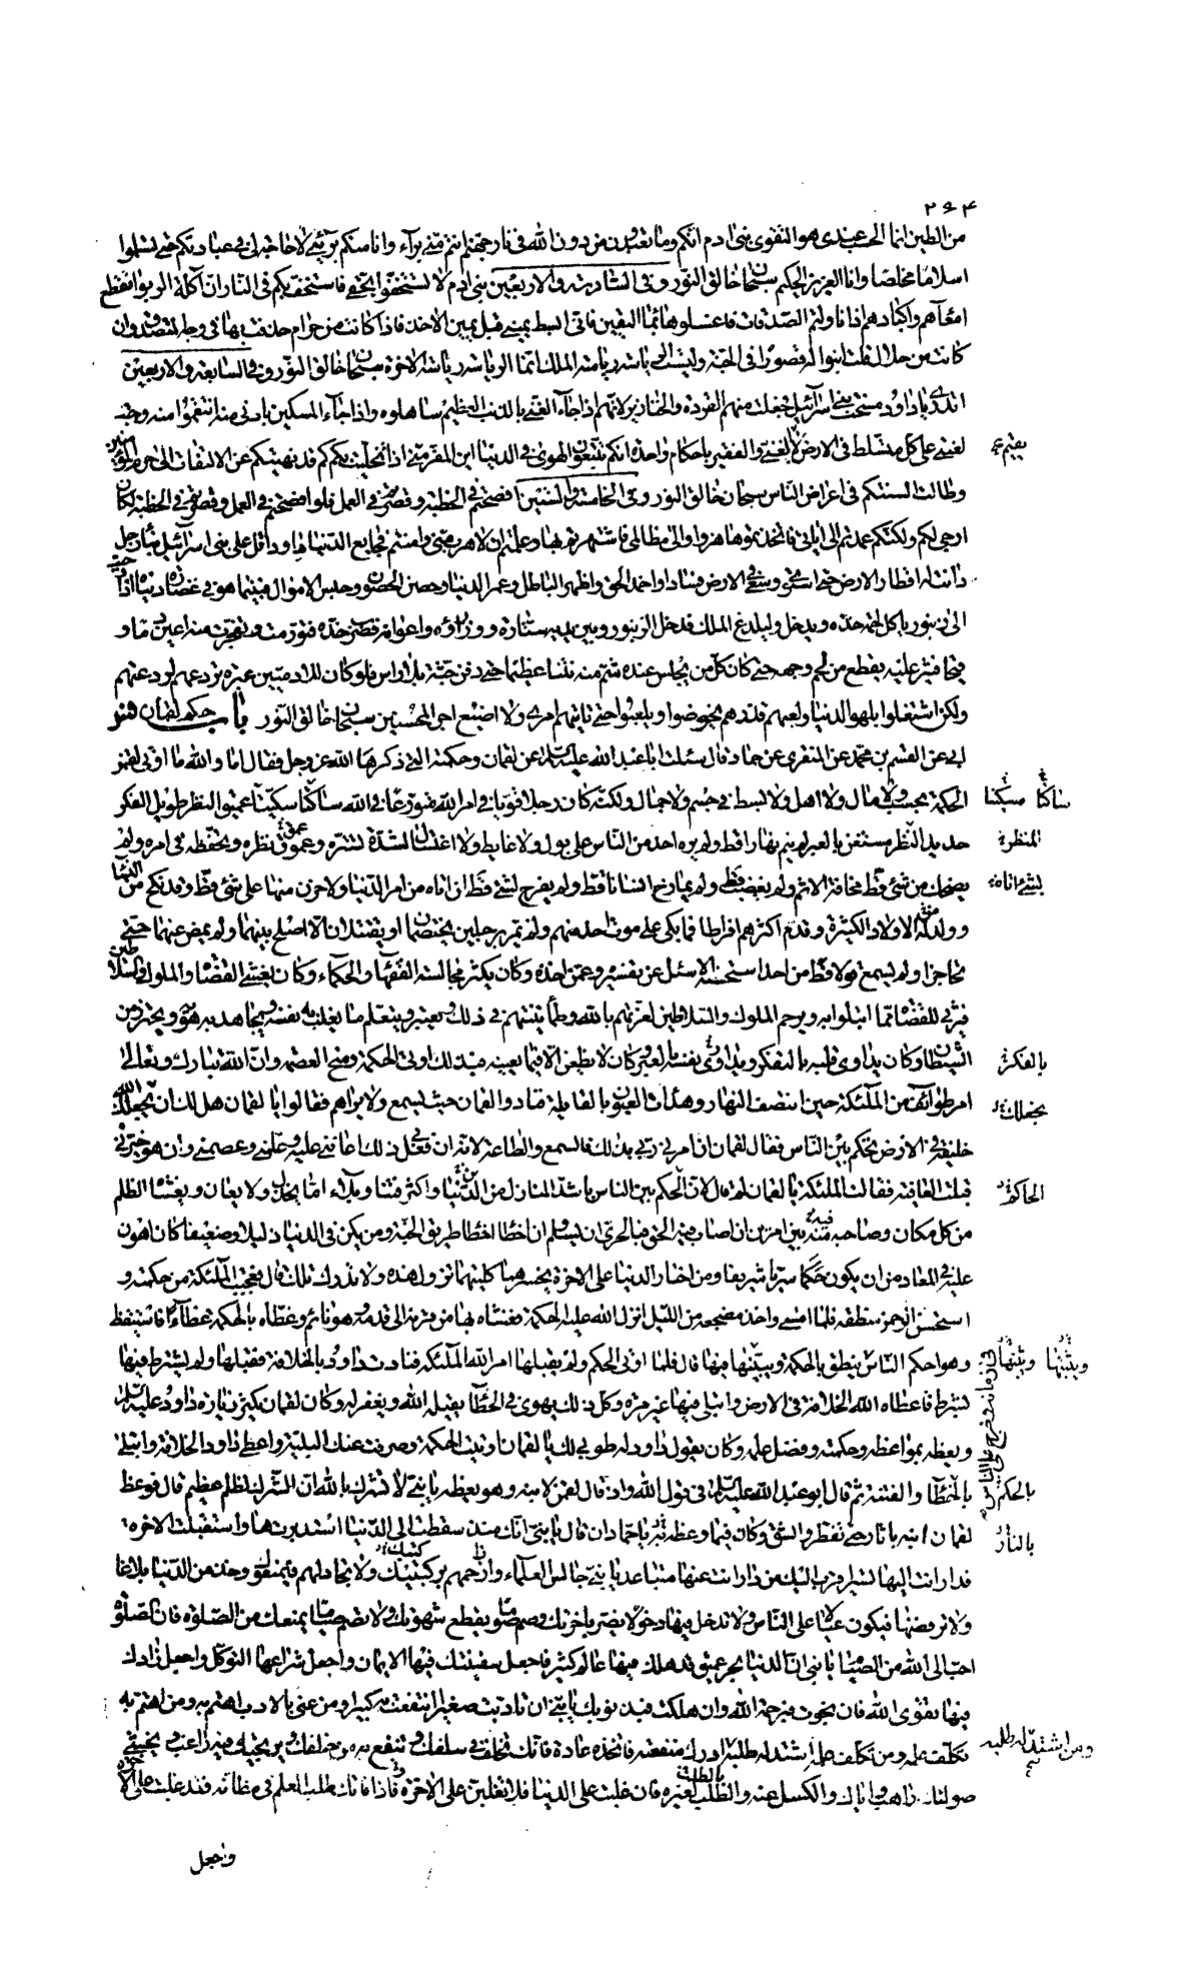 ٢٩٤
من الطين انما الحب عندى هو التقوى بنى ادم انكم وما تعبدون من دون الله فى نار جهنم انتم منى برآء وانا منكم برئ لا حاجة لى فى عبادتكم حتى تسلموا
اسلاما مخلصا وانا العزيز الحكيم سبحان خالق النور وفى السادسة والاربعين بنى ادم لا تستخفوا بحقى فاستخف بكم فى النار ان آكلة الربوا تقطع
امعآهم واكبادهم اذا ناولتم الصدقات فاغسلوها بماء اليقين فانى ابسط يمينى قبل يمين الاخذ فاذا كانت من حرام حذفت بها فى وجه المتصدق وان
كانت من حلال قلت ابنوا له قصورا فى الجنة وليست الرياسة رياسة الملك انما الرياسة رياسة الاخرة سبحان خالق النور وفى السابعة والاربعين
يا داود مسخت بنى اسرآئيل فجعلت منهم القردة والخنازير لانهم اذا جآء الغنى بالذنب العظيم ساهلوه واذا جآء المسكين بادنى منه انتقموا منه وجبت
لعنتى على كل متسلط فى الارض لا يقيم الغنى والفقير باحكام واحدة انكم تتبعون الهوى فى الدنيا اين المفر منى اذا تخليت بكم كم قد نهيتكم عن الالتفات الى حرم المؤمنين
وطالت السنتكم فى اعراض الناس سبحان خالق النور وفى الخامسة والستين افصحتم فى الخطبة وقصرتم فى العمل فلو افصحتم فى العمل وقصرتم فى الخطبة لكان
ارجى لكم ولكنكم عمدتم الى اياتى فاتخذتموها هزوا والى مظالمى فاشتهرتم بها وعلمتم ان لا هرب منى وامنتم فجايع الدنيا داود اتل على بنى اسرآئيل نبأ رجل
دانت له اقطار الارض حتى استوى وسعى فى الارض فسادا واخمد الحق واظهر الباطل وعمر الدنيا وحصن الحصون وحبس الاموال فبينما هو فى غضارة دنياه اذ اوحيت
الى زنبور ياكل لحمة خده ويدخل وليلدغ الملك فدخل الزنبور وبين يديه ستاره ووزراؤه واعوانه فضرب خده فتورمت وتفجرت منه اعين دما و
قيحا فثير عليه بقطع من لحم وجهه حتى كان كل من يجلس عنده شم منه نتنا عظيما حتى دفن جثة بلا راس فلو كان للادميين عبرة تردعهم لردعتهم
ولكن اشتغلوا بلهو الدنيا ولعبهم فذرهم يخوضوا ويلعبوا حتى ياتيهم امرى ولا اضيع اجر المحسنين سبحان خالق النور باب حكم لقمان فس
ابى عن القسم بن محمد عن المنقرى عن حماد قال سئلت ابا عبد الله عليه السلام عن لقمان وحكمته التى ذكرها الله عز وجل فقال اما والله ما اوتى لقمن
الحكمة بحسب ولا مال ولا اهل ولا بسط فى جسم ولا جمال ولكنه كان رجلا قويا فى امر الله متورعا فى الله ساكتا سكيتا عميق النظر طويل الفكر
حديد النظر مستعبر بالعبر لم ينم نهارا قط ولم يره احد من الناس على بول ولا غايط ولا اغتسال لشدة تستره وعموق نظره وتحفظه فى امره ولم
يضحك من شئ قط مخافة الاثم ولم يغضب قط ولم يمازح انسانا قط ولم يفرح لشئ قط ان اتاه من امر الدنيا ولا حزن منها على شئ قط وقد نكح من النساء
وولد له الاولاد الكثيرة وقدم اكثرهم افراطا فما بكى على موت احد منهم ولم يمر برجلين يختصمان او يقتتلان الا اصلح بينهما ولم يمض عنهما حتى
تحاجزا ولم يسمع قولا قط من احد استحسنه الا سئل عن تفسيره وعمن اخذه وكان يكثر مجالسة الفقهآء والحكمآء وكان يغشى القضاة والملوك والسلاطين
فيرثى للقضاة مما ابتلوا به ويرحم الملوك والسلاطين لعزتهم بالله وطمأنينتهم فى ذلك ويعتبر ويتعلم ما يغلب به نفسه ويجاهد به هواه ويحترز من
الشيطان وكان يداوى قلبه بالتفكر ويداوى نفسه بالعبر وكان لا يظعن الا فيما يعنيه فبذلك اوتى الحكمة ومنح العصمة وان الله تبارك وتعالى
امر طوآئف من الملئكة حين انتصف النهار وهدأت العيون بالقايلة فنادوا لقمان حيث يسمع ولا يراهم فقالوا يا لقمان هل لك ان يجعلك الله
خليفة فى الارض تحكم بين الناس فقال لقمان ان امرنى ربى بذلك فالسمع والطاعة لانه ان فعل بى ذلك اعاننى عليه وعلمنى وعصمنى وان هو خيرنى
قبلت العافية فقالت الملئكة يا لقمان لم قال لان الحكم بين الناس باشد المنازل من الدين واكثر فتنا وبلآء اما يخذل ولا يعان ويغشاه الظلم
من كل مكان وصاحبه منه بين امرين ان اصاب فيه الحق فبالحرى ان يسلم وان اخطأ اخطأ طريق الجنة ومن يكن فى الدنيا ذليلا وضعيفا كان اهون
عليه فى المعاد من ان يكون حكما سريا شريفا ومن اختار الدنيا على الاخرة يخسرهما كلتيهما تزول هذه ولا تدرك تلك قال فتعجبت الملئكة من حكمته و
استحسن الرحمن منطقه فلما امسى واخذ مضجعه من الليل انزل الله عليه الحكمة فغشاه بها من قرنه الى قدمه وهو نائم وغطاه بالحكمة غطآء فاستيقظ
وهو احكم الناس ينطق بالحكمة ويبينها فيها قال فلما اوتى الحكم ولم يقبلها امر الله الملئكة فنادت داود بالخلافة فقبلها ولم يشترط فيها
بشرط فاعطاه الله الخلافة فى الارض وابتلى فيها غير مرة وكل ذلك يهوى فى الخطآء يقيله الله ويغفر له وكان لقمان يكثر زيارة داود عليه السلام
ويعظه بمواعظه وحكمته وفضل علمه وكان يقول داود له طوبى لك يا لقمان اوتيت الحكمة وصرفت عنك البلية واعطى داود الخلافة وابتلى
بالخطآء والفتنة ثم قال ابو عبد الله عليه السلام فى قول الله واذ قال لقمن لابنه وهو يعظه يا بنى لا تشرك بالله ان الشرك لظلم عظيم قال فوعظ
لقمان ابنه باثار حتى تفطر وانشق وكان فيما وعظه به يا حماد ان قال يا بنى انك منذ سقطت الى الدنيا استدبرتها واستقبلت الاخرة
فدار انت اليها تسير اقرب اليك من دار انت عنها متباعد يا بنى جالس العلمآء وازحمهم بركبتيك ولا تجادلهم فيمنعوك وخذ من الدنيا بلاغا
ولا ترفضها فيكون عيالا على الناس ولا تدخل فيها دخولا يضر باخرتك وصم صوما يقطع شهوتك ولا تصم صياما يمنعك من الصلوة فان الصلوة
احب الى الله من الصيام يا بنى ان الدنيا بحر عميق قد هلك فيها عالم كثير فاجعل سفينتك فيها الايمان واجعل شراعها التوكل واجعل زادك
فيها تقوى الله فان نجوت فبرحمة الله وان هلكت فبذنوبك يا بنى ان تادبت صغيرا انتفعت به كبيرا ومن عنى بالادب اهتم به ومن اهتم به
تكلف علمه ومن تكلف علمه اشتد له طلبه ادرك منفعته فاتخذه عادة فانك تخلف فى سلفك وتنفع به من خلفك ويرتجيك فيه راغب ويخشى
صولتك راهب واياك والكسل عنه والطلب لغيره فان غلبت على الدنيا فلا تغلبن على الاخرة فاذا فاتك طلب العلم فى مظانه فقد غلبت على الاخرة
واجعل
يقيم
ساكنا مسكينا
المنظر
بشئ اتاه
بالفكر
يجعلك
الحاكم
ويثبتها ويبثها
بالحكم
بالنار
ومن اشتد له طلبه